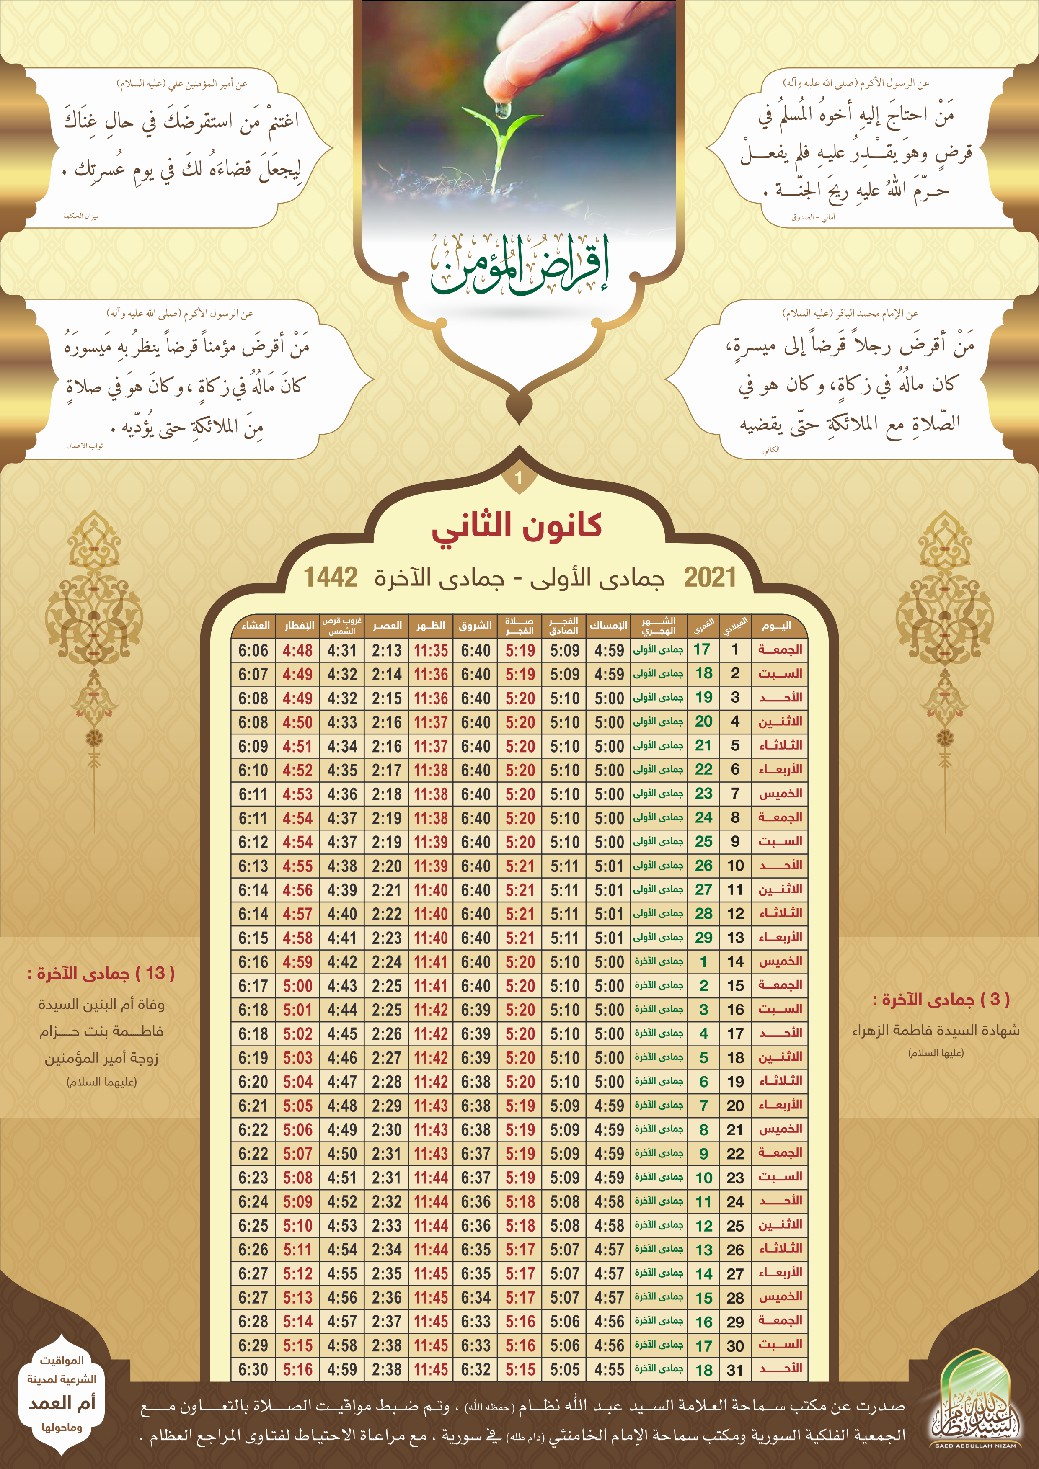 عن الرسول الأكرم (صلى الله عليه وآله)
مَنْ احتاجَ إليهِ أخوهُ المُسلمُ في
قرضٍ وهوَ يقـْـدِرُ عليـهِ فلم يفعـــلْ
حـرّمَ اللهُ عليهِ ريحَ الجنّــة .
أمالي - الصدوق
عن أمير المؤمنين علي (عليه السلام)
اغتنمْ مَن استقرضَكَ في حالِ غِنَاكَ
لِيجعَلَ قضاءَهُ لكَ في يومِ عُسرتِك .
ميزان الحكمة
إقراض المؤمن
عن الإمام محمد الباقر (عليه السلام)
مَنْ أقرضَ رجلاً قَرضاً إلى ميسرةٍ،
كان مالُهُ في زكاةٍ، وكان هو في
الصّلاةِ مع الملائكةِ حتّى يقضيه
الكافي
عن الرسول الأكرم (صلى الله عليه وآله)
مَنْ أقرضَ مؤمناً قرضاً ينظرُ بهِ مَيسورَهُ
كانَ مَالُهُ في زكاةٍ ، وكانَ هوَ في صلاةٍ
مِنَ الملائكةِ حتى يُؤدّيه .
ثواب الأعمال
1
كانون الثاني
2021 جمادى الأولى - جمادى الآخرة 1442
اليـوم الميلادي القمري الشـهر الهجـري الإمساك الفجـر الصادق صـلاة الفجـر الشروق الظـهر العصـر غروب قرص الشمس الإفطار العشاء
الجمعـة 1 17 جمادى الأولى 4:59 5:09 5:19 6:40 11:35 2:13 4:31 4:48 6:06
السـبت 2 18 جمادى الأولى 4:59 5:09 5:19 6:40 11:36 2:14 4:32 4:49 6:07
الأحـــد 3 19 جمادى الأولى 5:00 5:10 5:20 6:40 11:36 2:15 4:32 4:49 6:08
الاثنـين 4 20 جمادى الأولى 5:00 5:10 5:20 6:40 11:37 2:16 4:33 4:50 6:08
الثلاثـاء 5 21 جمادى الأولى 5:00 5:10 5:20 6:40 11:37 2:16 4:34 4:51 6:09
الأربعـاء 6 22 جمادى الأولى 5:00 5:10 5:20 6:40 11:38 2:17 4:35 4:52 6:10
الخميس 7 23 جمادى الأولى 5:00 5:10 5:20 6:40 11:38 2:18 4:36 4:53 6:11
الجمعـة 8 24 جمادى الأولى 5:00 5:10 5:20 6:40 11:38 2:19 4:37 4:54 6:11
السـبت 9 25 جمادى الأولى 5:00 5:10 5:20 6:40 11:39 2:19 4:37 4:54 6:12
الأحـــد 10 26 جمادى الأولى 5:01 5:11 5:21 6:40 11:39 2:20 4:38 4:55 6:13
الاثنـين 11 27 جمادى الأولى 5:01 5:11 5:21 6:40 11:40 2:21 4:39 4:56 6:14
الثلاثـاء 12 28 جمادى الأولى 5:01 5:11 5:21 6:40 11:40 2:22 4:40 4:57 6:14
الأربعـاء 13 29 جمادى الأولى 5:01 5:11 5:21 6:40 11:40 2:23 4:41 4:58 6:15
الخميس 14 1 جمادى الآخرة 5:00 5:10 5:20 6:40 11:41 2:24 4:42 4:59 6:16
الجمعـة 15 2 جمادى الآخرة 5:00 5:10 5:20 6:40 11:41 2:25 4:43 5:00 6:17
السـبت 16 3 جمادى الآخرة 5:00 5:10 5:20 6:39 11:42 2:25 4:44 5:01 6:18
الأحـــد 17 4 جمادى الآخرة 5:00 5:10 5:20 6:39 11:42 2:26 4:45 5:02 6:18
الاثنـين 18 5 جمادى الآخرة 5:00 5:10 5:20 6:39 11:42 2:27 4:46 5:03 6:19
الثلاثـاء 19 6 جمادى الآخرة 5:00 5:10 5:20 6:38 11:42 2:28 4:47 5:04 6:20
الأربعـاء 20 7 جمادى الآخرة 4:59 5:09 5:19 6:38 11:43 2:29 4:48 5:05 6:21
الخميس 21 8 جمادى الآخرة 4:59 5:09 5:19 6:38 11:43 2:30 4:49 5:06 6:22
الجمعـة 22 9 جمادى الآخرة 4:59 5:09 5:19 6:37 11:43 2:31 4:50 5:07 6:22
السـبت 23 10 جمادى الآخرة 4:59 5:09 5:19 6:37 11:44 2:31 4:51 5:08 6:23
الأحـــد 24 11 جمادى الآخرة 4:58 5:08 5:18 6:36 11:44 2:32 4:52 5:09 6:24
الاثنـين 25 12 جمادى الآخرة 4:58 5:08 5:18 6:36 11:44 2:33 4:53 5:10 6:25
الثلاثـاء 26 13 جمادى الآخرة 4:57 5:07 5:17 6:35 11:44 2:34 4:54 5:11 6:26
الأربعـاء 27 14 جمادى الآخرة 4:57 5:07 5:17 6:35 11:45 2:35 4:55 5:12 6:27
الخميس 28 15 جمادى الآخرة 4:57 5:07 5:17 6:34 11:45 2:36 4:56 5:13 6:27
الجمعـة 29 16 جمادى الآخرة 4:56 5:06 5:16 6:33 11:45 2:37 4:57 5:14 6:28
السـبت 30 17 جمادى الآخرة 4:56 5:06 5:16 6:33 11:45 2:38 4:58 5:15 6:29
الأحـــد 31 18 جمادى الآخرة 4:55 5:05 5:15 6:32 11:45 2:38 4:59 5:16 6:30
( 3 ) جمادى الآخرة :
شهادة السيدة فاطمة الزهراء
(عليها السلام)
( 13 ) جمادى الآخرة :
وفاة أم البنين السيدة
فاطـــمة بنت حـــزام
زوجة أمير المؤمنين
(عليهما السلام)
صـدرت عن مكتب سـماحة العلامة السـيد عبـد الله نظـام (حفظه الله) ، وتـم ضبـط مواقيـت الصـلاة بالتعـاون مـــع
الجمعية الفلكية السورية ومكتب سماحة الإمام الخامنئي (دام ظله) في سورية ، مع مراعاة الاحتياط لفتاوى المراجع العظام .
المواقيت
الشرعية لمدينة
أم العمد
وماحولها
السيد عبدالله نظام
SAED ABDULLAH NIZAM